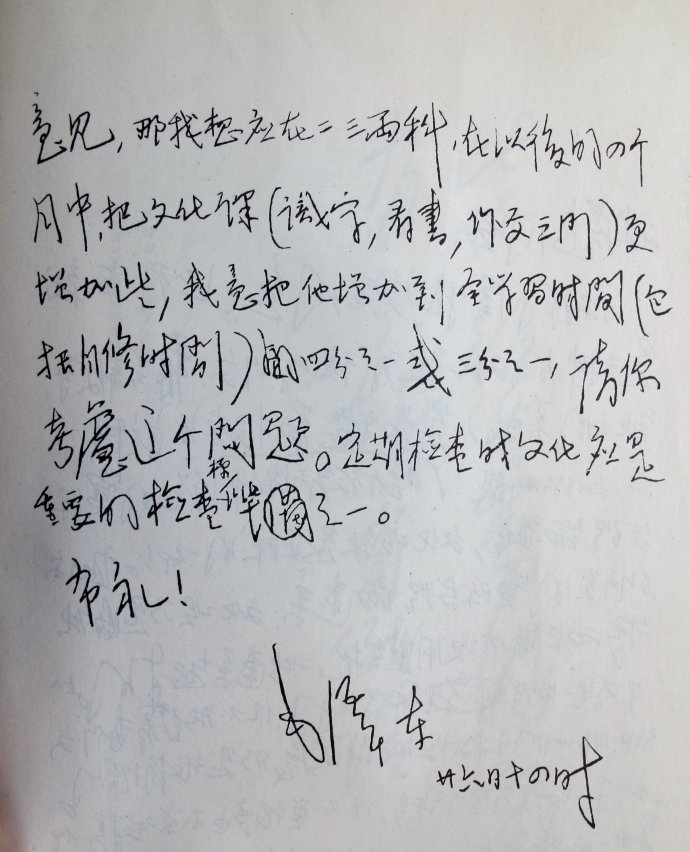 意见，那我想应在二三两科，在以後的四个
月中，把文化课（識字，看書，作文三門）更
增加些，我意把他增加到全学習时間（包
括自修时間）的四分之一或三分之一，请你
考慮这个問题。定期检查时文化应是
重要的检查標準之一。
布礼！
毛澤东
廿六日十四时